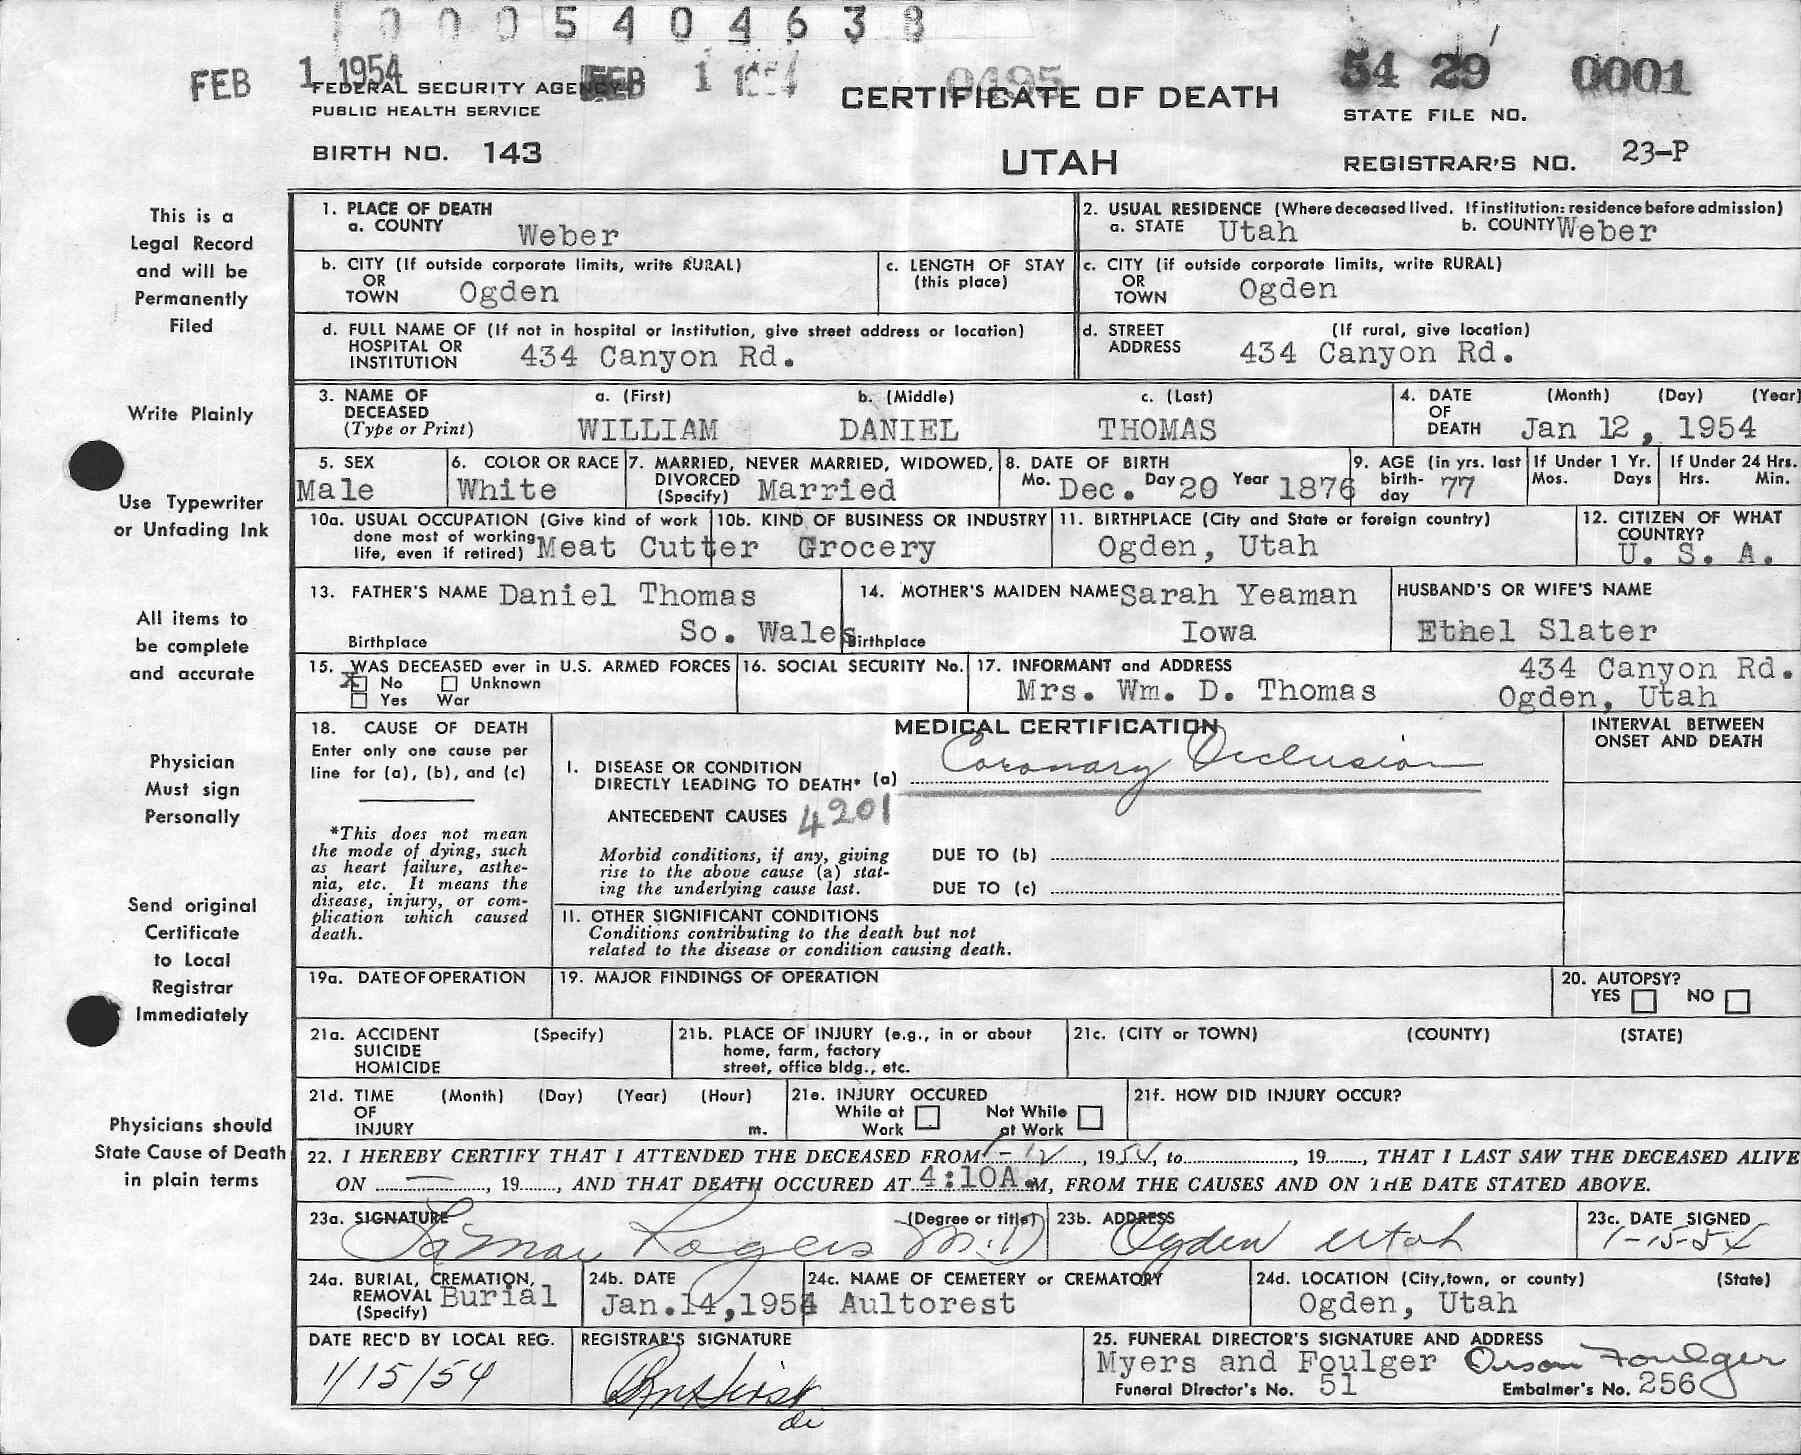 1000540463 8
FEB 1 1954 FEB 1 1954 0495 54 29 0001
FEDERAL SECURITY AGENCY CERTIFICATE OF DEATH STATE FILE NO.
PUBLIC HEALTH SERVICE
BIRTH NO. 143 UTAH REGISTRAR'S NO. 23-P
This is a
Legal Record
and will be
Permanently
Filed
Write Plainly
Use Typewriter
or Unfading Ink
All items to
be complete
and accurate
Physician
Must sign
Personally
Send original
Certificate
to Local
Registrar
Immediately
Physicians should
State Cause of Death
in plain terms
1. PLACE OF DEATH
a. COUNTY Weber
2. USUAL RESIDENCE (Where deceased lived. If institution: residence before admission)
a. STATE Utah b. COUNTY Weber
b. CITY (If outside corporate limits, write RURAL)
OR
TOWN Ogden
c. LENGTH OF STAY
(this place)
c. CITY (if outside corporate limits, write RURAL)
OR
TOWN Ogden
d. FULL NAME OF (If not in hospital or Institution, give street address or location)
HOSPITAL OR
INSTITUTION 434 Canyon Rd.
d. STREET (If rural, give location)
ADDRESS 434 Canyon Rd.
3. NAME OF a. (First) b. (Middle) c. (Last)
DECEASED
(Type or Print) WILLIAM DANIEL THOMAS
4. DATE (Month) (Day) (Year)
OF
DEATH Jan 12, 1954
5. SEX
Male
6. COLOR OR RACE
White
7. MARRIED, NEVER MARRIED, WIDOWED,
DIVORCED
(Specify) Married
8. DATE OF BIRTH
Mo. Dec. Day 20 Year 1876
9. AGE (in yrs. last
birth-
day 77
If Under 1 Yr.
Mos. Days
If Under 24 Hrs.
Hrs. Min.
10a. USUAL OCCUPATION (Give kind of work
done most of working
life, even if retired) Meat Cutter
10b. KIND OF BUSINESS OR INDUSTRY
Grocery
11. BIRTHPLACE (City and State or foreign country)
Ogden, Utah
12. CITIZEN OF WHAT
COUNTRY?
U. S. A.
13. FATHER'S NAME Daniel Thomas
Birthplace So. Wales
14. MOTHER'S MAIDEN NAME Sarah Yeaman
Birthplace Iowa
HUSBAND'S OR WIFE'S NAME
Ethel Slater
15. WAS DECEASED ever in U.S. ARMED FORCES
X No Unknown
Yes War
16. SOCIAL SECURITY No.
17. INFORMANT and ADDRESS 434 Canyon Rd.
Mrs. Wm. D. Thomas Ogden, Utah
18. CAUSE OF DEATH
Enter only one cause per
line for (a), (b), and (c)
*This does not mean
the mode of dying, such
as heart failure, asthe-
nia, etc. It means the
disease, injury, or com-
plication which caused
death.
MEDICAL CERTIFICATION
INTERVAL BETWEEN
ONSET AND DEATH
I. DISEASE OR CONDITION
DIRECTLY LEADING TO DEATH* (a) Coronary Occlusion
ANTECEDENT CAUSES 4201
Morbid conditions, if any, giving
rise to the above cause (a) stat-
ing the underlying cause last.
DUE TO (b)
DUE TO (c)
II. OTHER SIGNIFICANT CONDITIONS
Conditions contributing to the death but not
related to the disease or condition causing death.
19a. DATE OF OPERATION
19. MAJOR FINDINGS OF OPERATION
20. AUTOPSY?
YES NO
21a. ACCIDENT (Specify)
SUICIDE
HOMICIDE
21b. PLACE OF INJURY (e.g., in or about
home, farm, factory
street, office bldg., etc.
21c. (CITY or TOWN) (COUNTY) (STATE)
21d. TIME (Month) (Day) (Year) (Hour)
OF
INJURY m.
21e. INJURY OCCURED
While at Not While
Work at Work
21f. HOW DID INJURY OCCUR?
22. I HEREBY CERTIFY THAT I ATTENDED THE DECEASED FROM 1-12, 1954, to , 19 , THAT I LAST SAW THE DECEASED ALIVE
ON — , 19 , AND THAT DEATH OCCURED AT 4:10A.M, FROM THE CAUSES AND ON THE DATE STATED ABOVE.
23a. SIGNATURE (Degree or title)
LaMar Rogers M.D
23b. ADDRESS
Ogden Utah
23c. DATE SIGNED
1-15-54
24a. BURIAL, CREMATION,
REMOVAL
(Specify) Burial
24b. DATE
Jan. 14, 1954
24c. NAME OF CEMETERY or CREMATORY
Aultorest
24d. LOCATION (City, town, or county) (State)
Ogden, Utah
DATE REC'D BY LOCAL REG.
1/15/54
REGISTRAR'S SIGNATURE
25. FUNERAL DIRECTOR'S SIGNATURE AND ADDRESS
Myers and Foulger Orson Foulger
Funeral Director's No. 51 Embalmer's No. 256